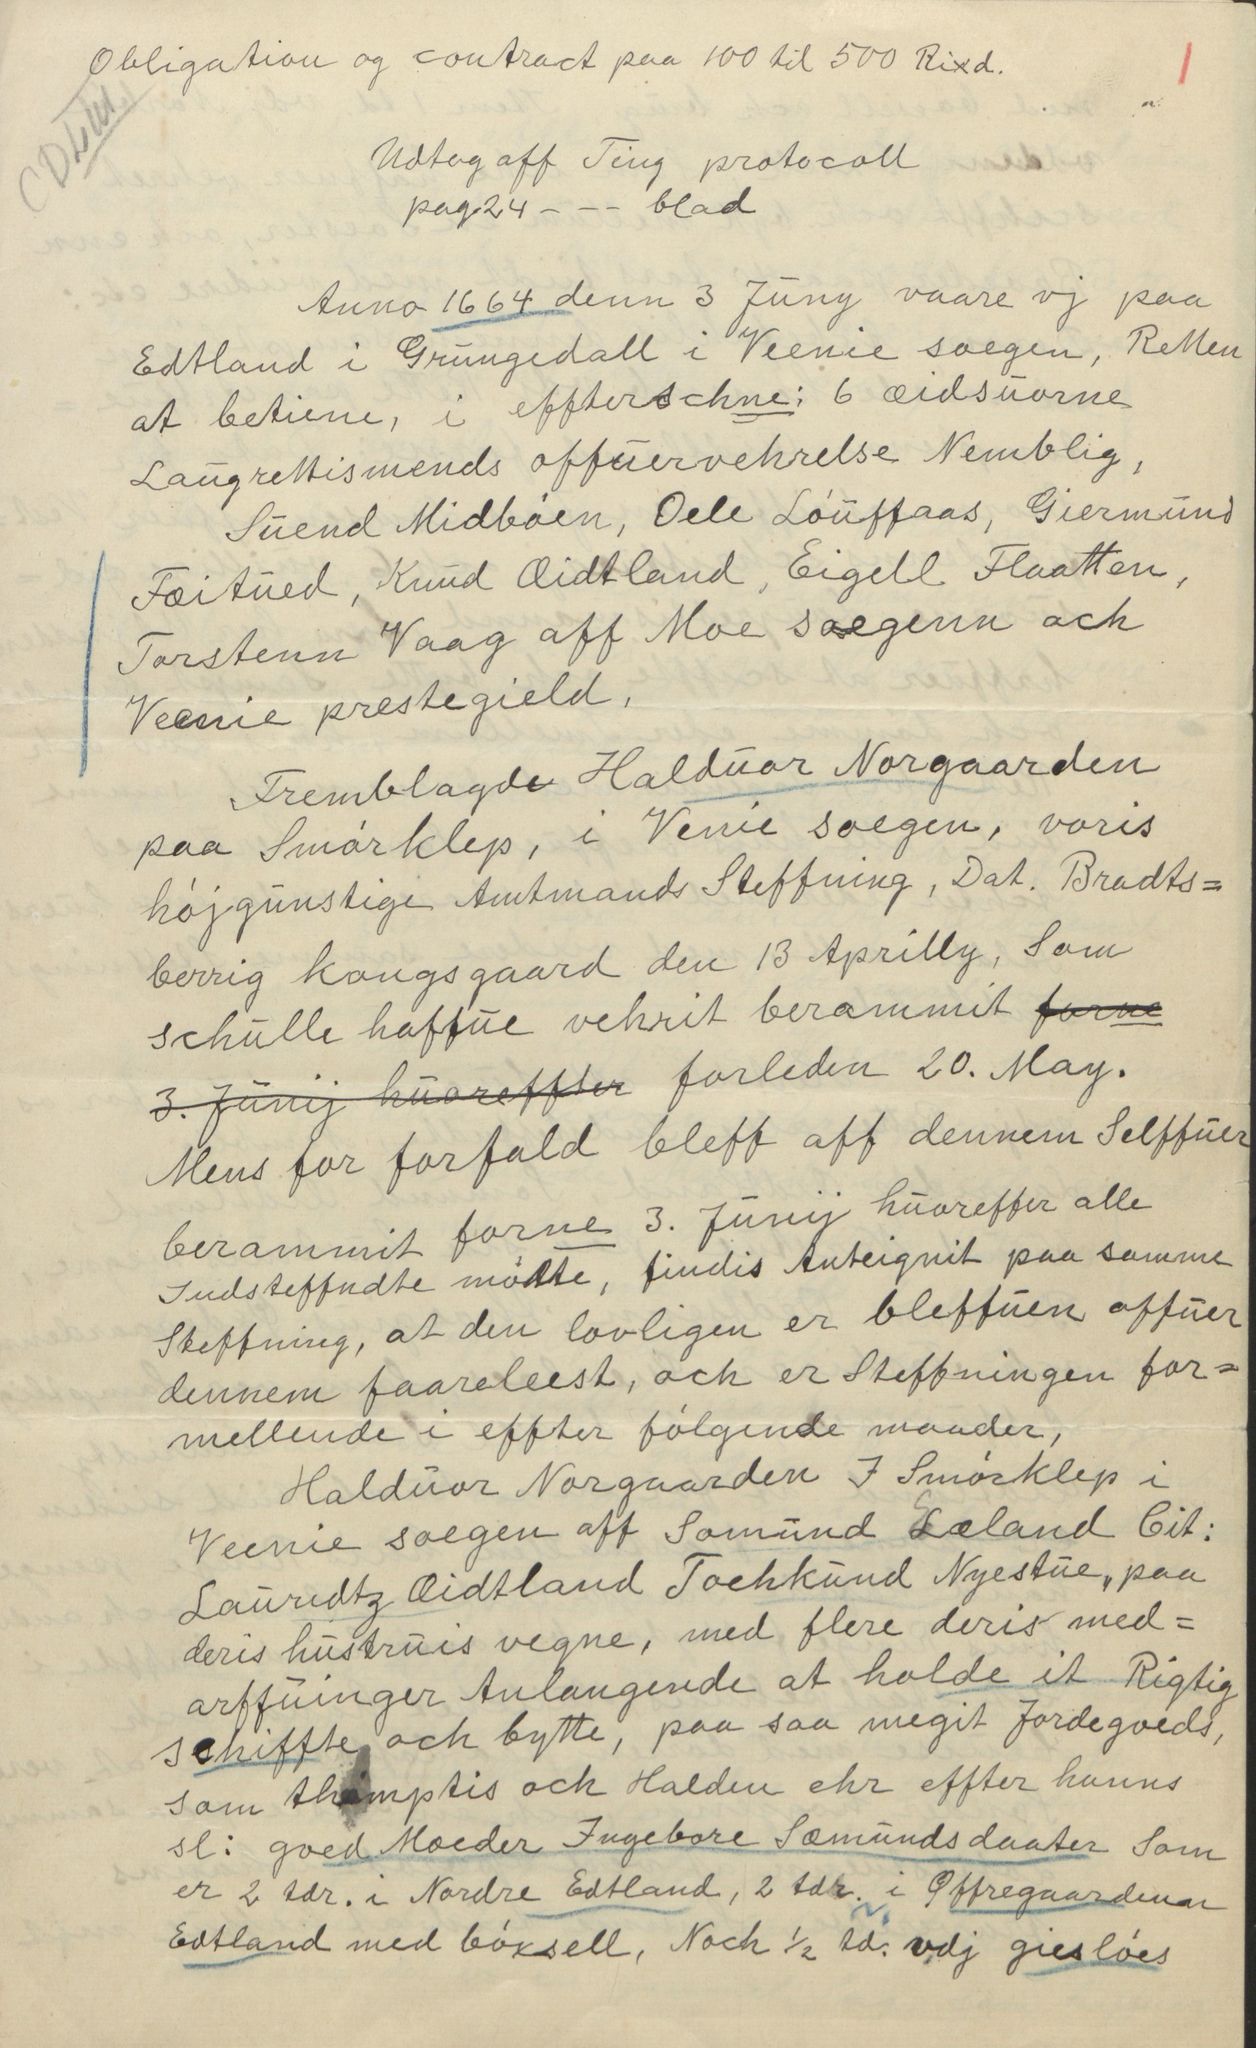 Obligation og contract paa 100 til 500 Rixd.
1
Udtog aff Ting protocoll
pag 24 - - - blad
Anno 1664 denn 3 Jüny vaare vj paa
Edtland i Grüngedall i Veenie soegen, Retten
at betiene, i effterschne: 6 œidsüorne
Laügrettismends offüervehrelse Nemblig,
Süend Midbóen, Oele Lóüffaas, Giermünd
Fœitüed, Knüd Œidtland, Eigell Flaatten,
Torstenn Vaag aff Moe soegenn och
Veenie prestegield.
Fremblagde Haldüor Norgaarden
paa Smórklep, i Venie soegen, voris
hójgünstige Amtmands Steffning, Dat. Bradts=
berrig kongsgaard den 13 Aprilly, Som
schülle haffüe vehrit berammit forne
3. Jünij hüoreffter forleden 20. May.
Mens for forfald bleff aff dennem Selffüer
berammit forne 3. Jünij hüoreffer alle
Indsteffndte mótte, findis Anteignit paa samme
Steffning, at den lovligen er bleffüen offüer
dennem faareleest, och er Steffningen for=
mellende i effter fólgende maader,
Haldüor Norgaarden I Smórklep i
Veenie soegen aff Somünd Lœland Cit:
Lauridtz Œidtland Tochkünd Nyestüe, paa
deris hüstrüis vegne, med flere deris med=
arffüinger Anlangende at holde it Rigtig
schiffte och bytte, paa saa megit Jordegoeds,
som thimptis och Halden ehr effter hanns
sl: goed Moeder Ingebore Sœmündsdaater Som
er 2 tdr. i Nordre Edtland, 2 tdr. i Óffregaardenn
Edtland med bóxsell, Noch ½ td. vdj gieslóes